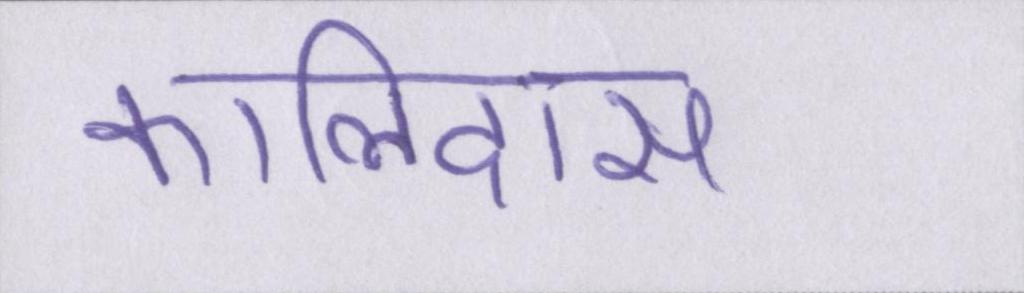 कालिदास